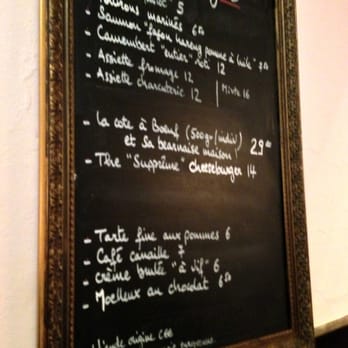 5
- Poivrons marinés 6€
- Saumon "façon hareng pomme à huile"
- Camembert "entier" rôti 12
- Assiette fromage 12
- Assiette charcuterie 12 | Mixte 16
- La cote à Boeuf (500gr/indiv)
et sa bearnaise maison! 29€
- The "Suprême" cheeseburger 14
- Tarte fine aux pommes 6
- Café canaille 7
- crème brulée "à vif" 6
- Moelleux au chocolat 6€
origine